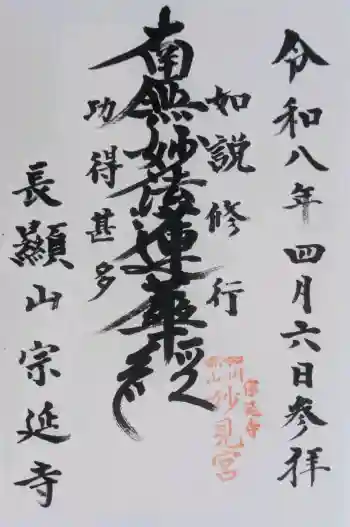 令和八年四月六日参拝
如説修行
南無妙法蓮華経
功得甚多
長顯山宗延寺
妙見宮
宗延寺